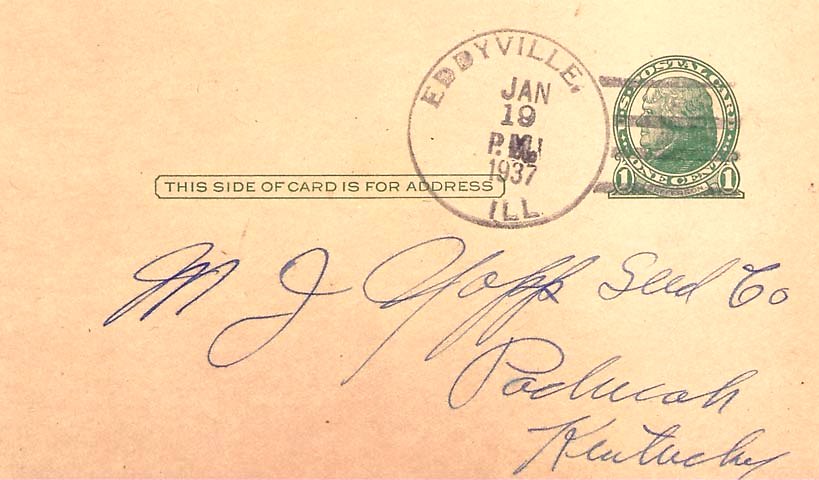 EDDYVILLE,
JAN
19
P.M.
1937
ILL.
U.S. POSTAL CARD
ONE CENT
1 JEFFERSON 1
THIS SIDE OF CARD IS FOR ADDRESS
M J Yopp Seed Co
Paducah
Kentucky